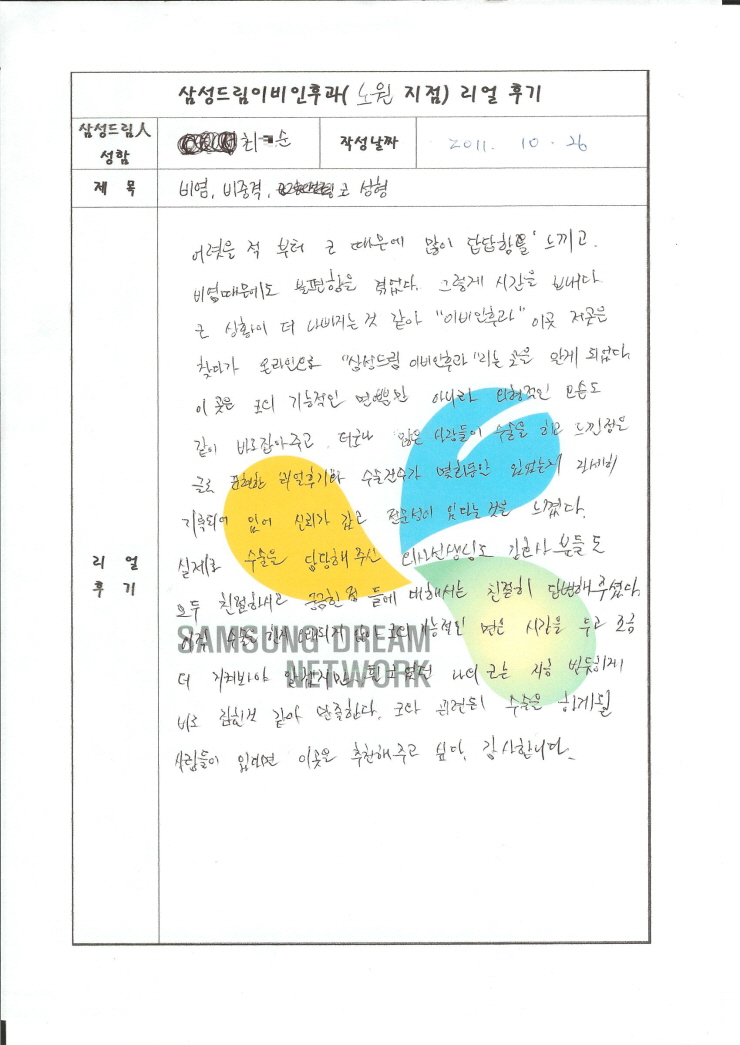 삼성드림이비인후과( 노원 지점) 리얼 후기
삼성드림人 성함
최 순
작성날짜
2011. 10. 26
제 목
비염, 비중격, 코 성형
리 얼 후 기
어렸을 적 부터 코 때문에 많이 답답함을 느끼고.
비염때문에도 불편함을 겪었다. 그렇게 시간을 보내다.
코 상황이 더 나빠지는 것 같아 "이비인후과" 이곳 저곳을
찾다가 온라인으로 "삼성드림 이비인후과"라는 곳을 알게 되었다.
이 곳은 코의 기능적인 면뿐만 아니라 외형적인 모습도
같이 바로잡아주고 더구나 많은 사람들이 수술을 하고 느낀점을
글로 표현한 리얼후기와 수술건수가 몇회동안 있었는지 자세히
기록되어 있어 신뢰가 갔고 전문성이 있다는 것을 느꼈다.
실제로 수술을 담당해 주신 의사선생님도 간호사 분들도
모두 친절하시고 궁금한 점 들에 대해서는 친절히 답변해 주셨다.
아직 수술을 한지 얼마되지 않아 코의 기능적인 면은 시간을 두고 조금
더 지켜봐야 알겠지만 휘고 없던 나의 코는 지금 반듯하게
바로 잡힌것 같아 만족한다. 코와 관련된 수술을 하게될
사람들이 있다면 이곳을 추천해 주고 싶다. 감사합니다.
SAMSUNG DREAM
NETWORK